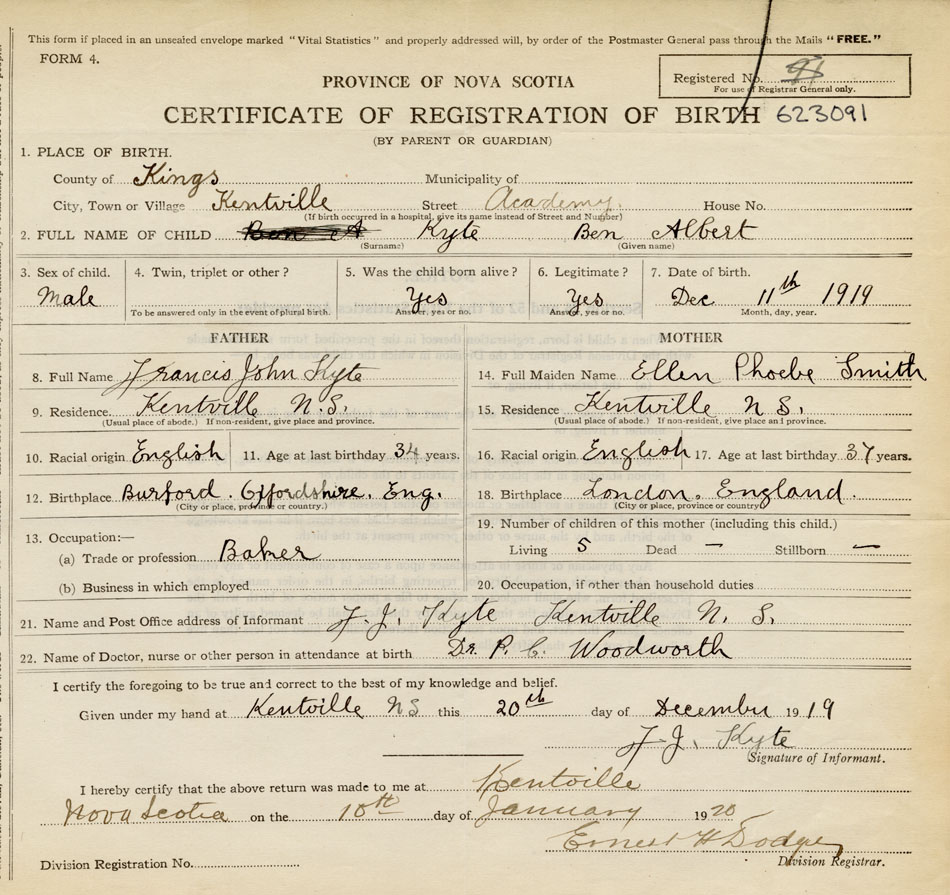 This form if placed in an unsealed envelope marked "Vital Statistics" and properly addressed will, by order of the Postmaster General pass through the Mails "FREE."
FORM 4.
Registered No.
For use of Registrar General only.
PROVINCE OF NOVA SCOTIA
CERTIFICATE OF REGISTRATION OF BIRTH 623091
(BY PARENT OR GUARDIAN)
1. PLACE OF BIRTH.
County of Kings Municipality of
City, Town or Village Kentville Street Academy. House No.
(If birth occurred in a hospital, give its name instead of Street and Number)
2. FULL NAME OF CHILD Ben A Kyte Ben Albert
(Surname) (Given name)
3. Sex of child. 4. Twin, triplet or other? 5. Was the child born alive? 6. Legitimate? 7. Date of birth.
Male Yes Yes Dec 11th 1919
To be answered only in the event of plural birth. Answer, yes or no. Answer, yes or no. Month, day, year.
FATHER MOTHER
8. Full Name Francis John Kyte 14. Full Maiden Name Ellen Phoebe Smith
9. Residence Kentville N.S. 15. Residence Kentville N S.
(Usual place of abode.) If non-resident, give place and province. (Usual place of abode.) If non-resident, give place and province.
10. Racial origin English 11. Age at last birthday 34 years. 16. Racial origin English 17. Age at last birthday 37 years.
12. Birthplace Burford. Oxfordshire, Eng. 18. Birthplace London, England.
(City or place, province or country.) (City or place, province or country.)
19. Number of children of this mother (including this child.)
13. Occupation:—
(a) Trade or profession Baker Living 5 Dead — Stillborn —
(b) Business in which employed 20. Occupation, if other than household duties
21. Name and Post Office address of Informant F. J. Kyte Kentville N. S.
22. Name of Doctor, nurse or other person in attendance at birth Dr. P. C. Woodworth
I certify the foregoing to be true and correct to the best of my knowledge and belief.
Given under my hand at Kentville NS this 20th day of December 1919
F. J. Kyte
Signature of Informant.
I hereby certify that the above return was made to me at Kentville
Nova Scotia on the 10th day of January 1920
Ernest H Dodge
Division Registrar.
Division Registration No.